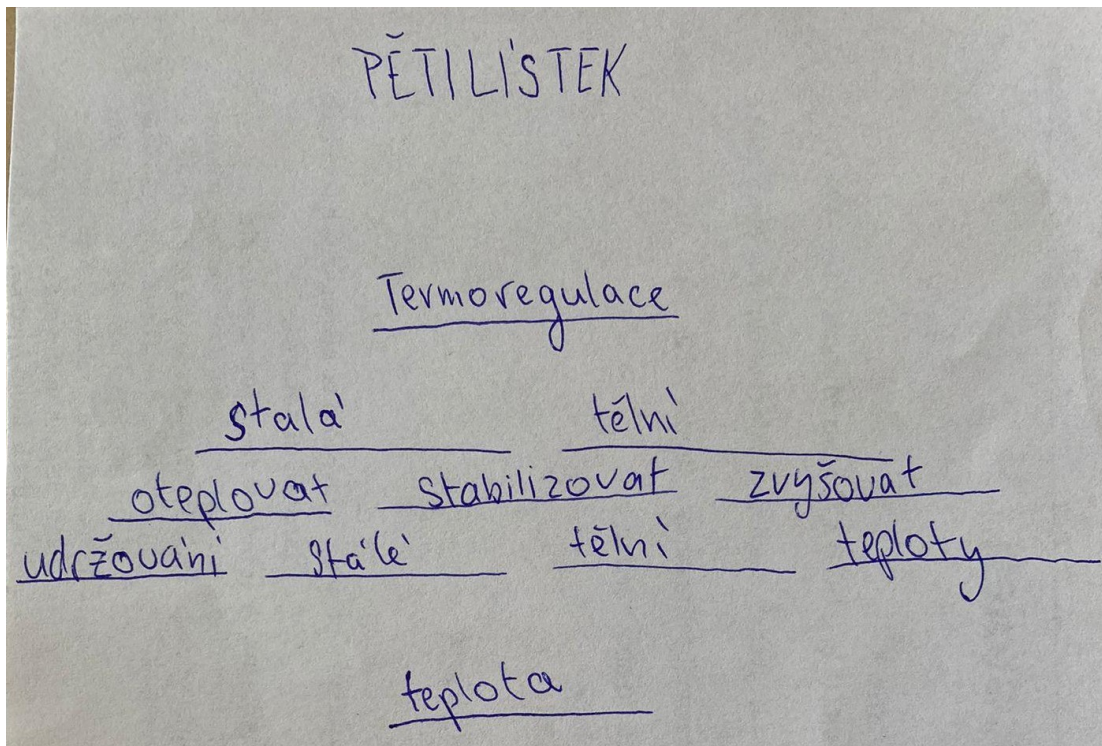 PĚTILÍSTEK
Termoregulace
stalá tělní
oteplovat stabilizovat zvyšovat
udržování stálé tělní teploty
teplota